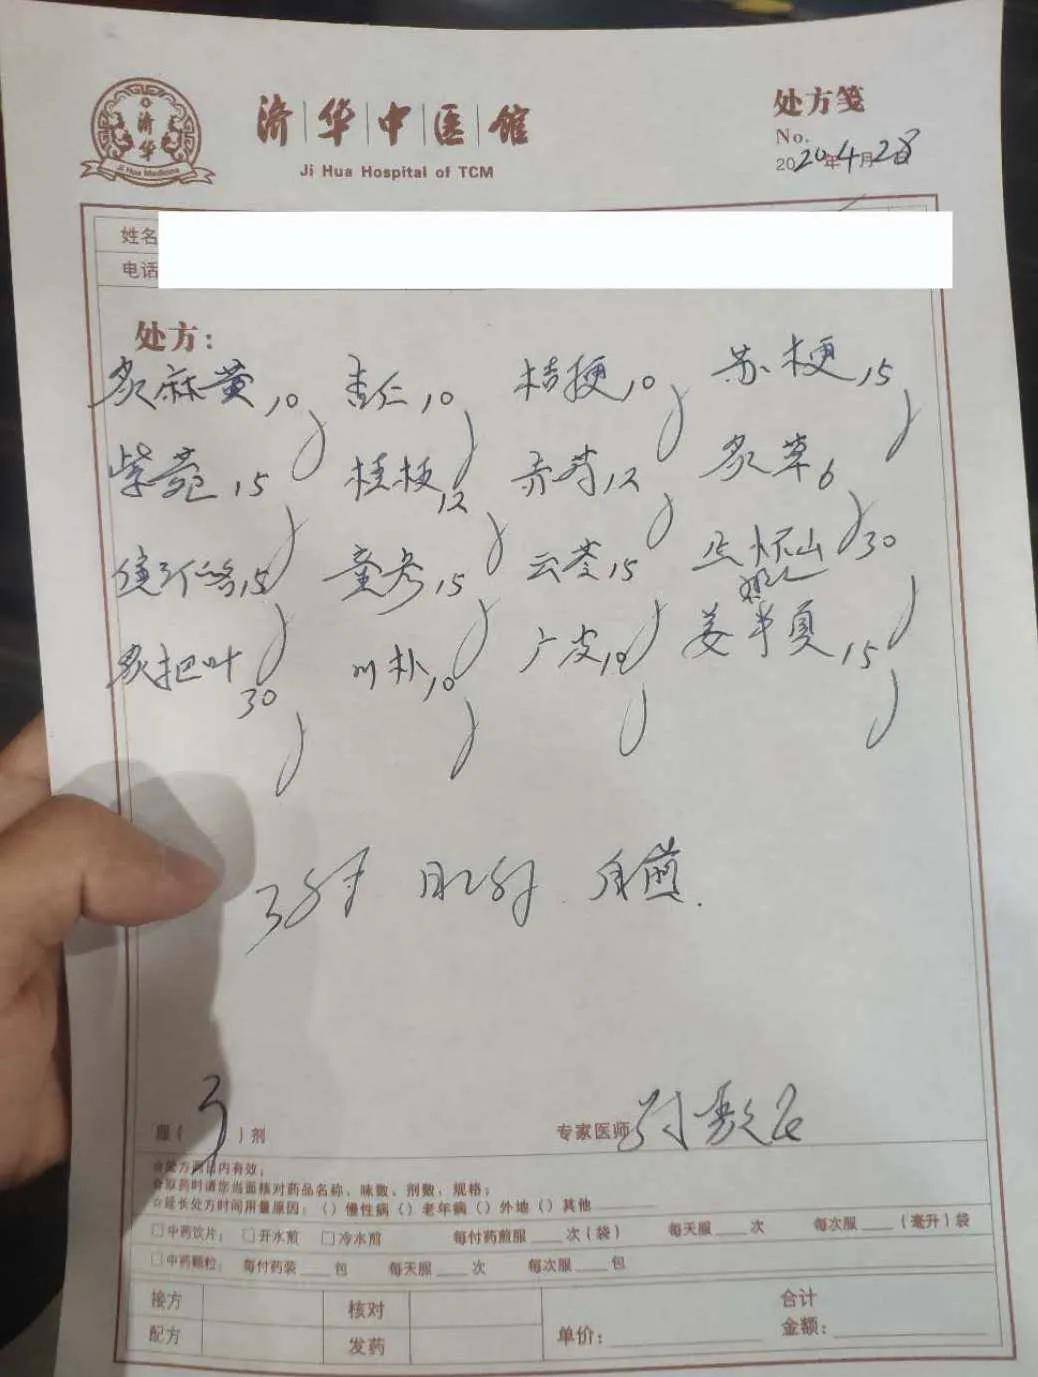 济华
Ji Hua Medicine
济华中医馆
Ji Hua Hospital of TCM
处方笺
No.
2020年4月28日
姓名
电话
处方：
炙麻黄10 杏仁10 桔梗10 苏梗15
紫菀15 桂枝12 赤芍12 炙草6
15 童参15 云苓15 怀山30
炙杷叶30 川朴10 广皮10 姜半夏15
3付 日1付 自煎.
3）剂
专家医师
☆取药时请您当面核对药品名称、味数、剂数、规格；
☆延长处方时间用量原因：（）慢性病（）老年病（）外地（）其他
□中药饮片： □开水煎 □冷水煎 每付药煎服 次（袋） 每天服 次 每次服 （毫升）袋
□中药颗粒： 每付药装 包 每天服 次 每次服 包
接方 核对 合计
配方 发药 单价： 金额：